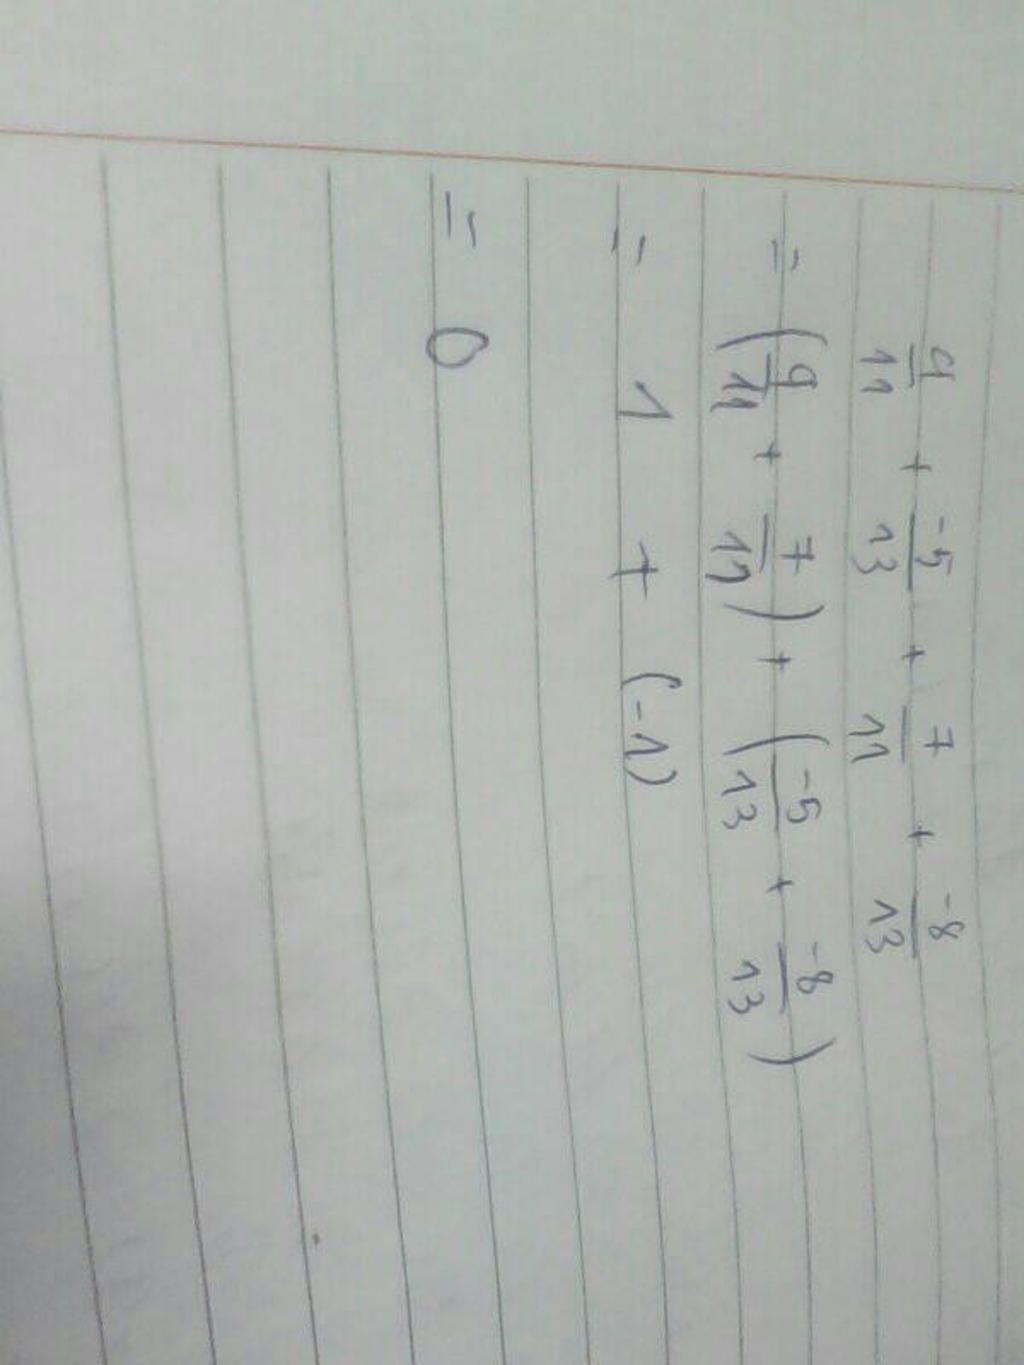 4/11 + -5/13 + 7/11 + -8/13
= (4/11 + 7/11) + (-5/13 + -8/13)
= 1 + (-1)
= 0